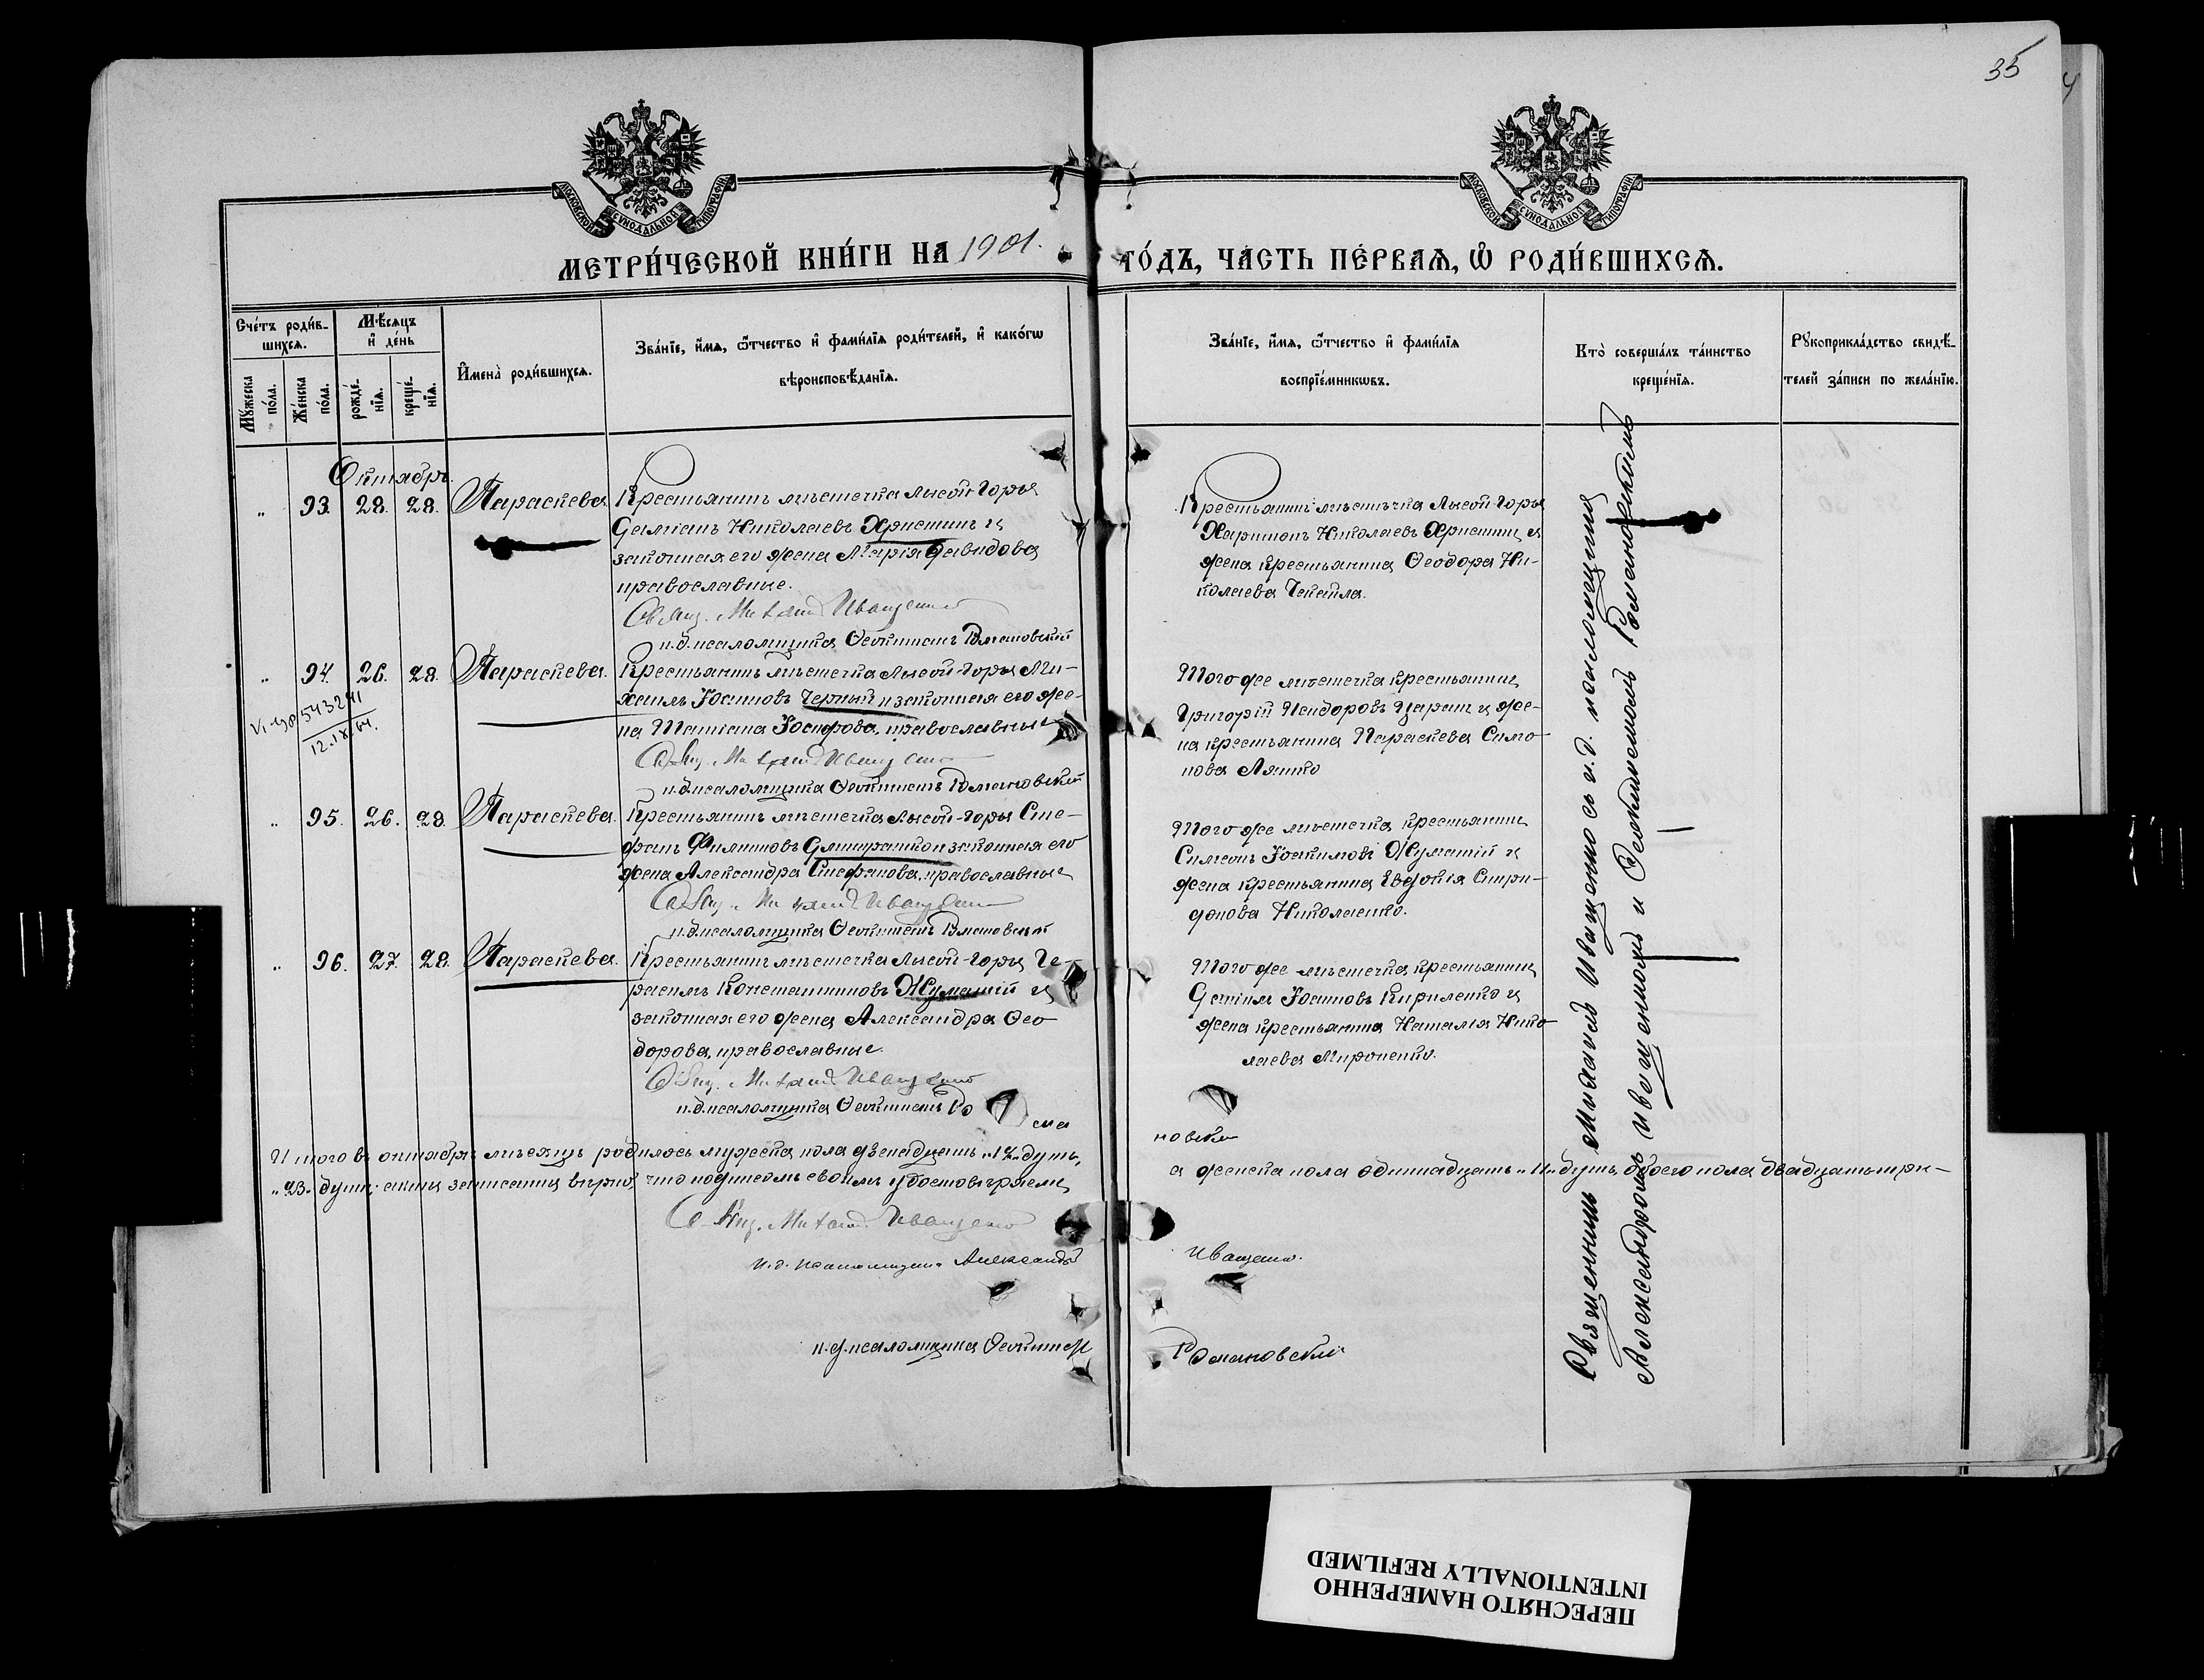 35
МОСКОВСКОЙ СѴНОДАЛЬНОЙ ТИПОГРАФІИ
МОСКОВСКОЙ СѴНОДАЛЬНОЙ ТИПОГРАФІИ
МЕТРИ́ЧЕСКОЙ КНИ́ГИ НА 1901. ГО́ДЪ, ЧА́СТЬ ПЕ́РВАѦ, Ѽ РОДИ́ВШИХСѦ.
Сче́тъ роди́в-
шихсѧ.
Мꙋ́жеска по́ла.
Же́нска по́ла.
Мѣ́сѧцъ и҆ де́нь
рожде́-
нїѧ.
креще́-
нїѧ.
И҆мена̀ роди́вшихсѧ.
Зва́нїе, и҆́мѧ, ѻ҆́тчество и҆ фами́лїѧ роди́телей, и҆ како́гѡ
вѣроисповѣ́данїѧ.
Зва́нїе, и҆́мѧ, ѻ҆́тчество и҆ фами́лїѧ
воспрїе́мникѡвъ.
Кто̀ соверша́лъ та́инство
креще́нїѧ.
Рꙋкоприкла́дство свидѣ́-
телей за́писи по жела́нїю.
Октябрь.
„ 93. 28. 28. Параскева.
Крестьянинъ мѣстечка Лысой-Горы
Даміанъ Николаевъ Христинъ и
законная его жена Марія Давидова
православные.
Свящ. Михаилъ Иващенко
и.д. псаломщика Ѳеоктистъ Романовскій
Крестьянинъ мѣстечка Лысой-Горы
Харитонъ Николаевъ Христин и
жена крестьянина Ѳеодора Ни-
колаева Чепетла.
„ 94. 26. 28. Параскева.
543291
12.IX.64.
Крестьянинъ мѣстечка Лысой-Горы Ми-
хаилъ Іоанновъ Черный и законная его же-
на Татіана Іосифова, православные
Свящ. Михаилъ Иващенко
и.д. псаломщика Ѳеоктистъ Романовскій
Того же мѣстечка крестьянин
Григорій Исидоровъ Царан и же-
на крестьянина Параскева Симо-
нова Ляшко
„ 95. 26. 28. Параскева.
Крестьянинъ мѣстечка Лысой-Горы Сте-
фанъ Филипповъ Дмитрашко и законная его
жена Александра Стефанова, православные
Свящ. Михаилъ Иващенко
и.д. псаломщика Ѳеоктистъ Романовскій
Того же мѣстечка крестьянин
Симеонъ Іоакимовъ Жуматій и
жена крестьянина Евдокія Спири-
донова Николаенко.
„ 96. 27. 28. Параскева.
Крестьянинъ мѣстечка Лысой-Горы Ге-
расимъ Константиновъ Жуматій и
законная его жена Александра Ѳео
дорова, православные.
Свящ. Михаилъ Иващенко
и.д. псаломщика Ѳеоктистъ Рома
новскій
Того же мѣстечка крестьянин
Іоанновъ Кириленко и
жена крестьянина Наталія Нико
лаева Мироненко.
Священникъ Михаилъ Иващенко съ и.д. псаломщика
Александромъ Иващенкомъ и Ѳеоктистомъ Романовскимъ
Итого въ октябрѣ мѣсяцѣ родилось мужеска пола двѣнадцать „12„ душъ, а женска пола одиннадцать „11„ душъ, обоего пола двадцать три-
„23„ души; акты записаны вѣрно, что подписомъ своимъ удостовѣряемъ
Свящ. Михаилъ Иващенко
и.д. псаломщика Александръ Иващенко.
и.д. псаломщика Ѳеоктистъ Романовскій
ПЕРЕСНЯТО НАМЕРЕННО
INTENTIONALLY REFILMED